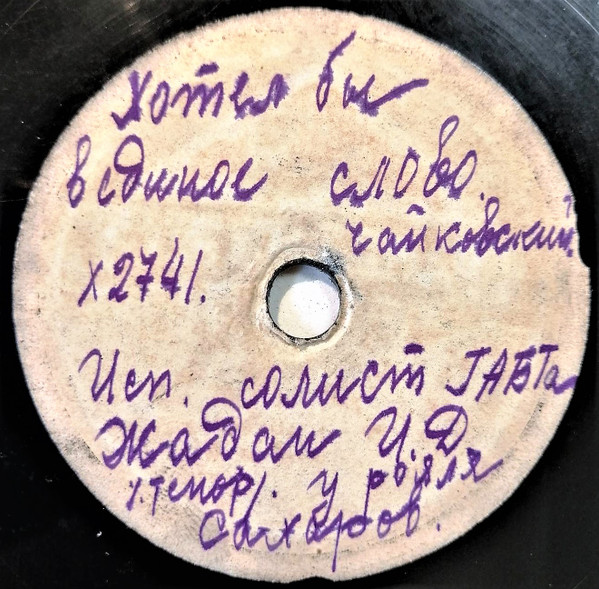 Хотел бы
в единое слово.
Чайковский.
х2741.
Исп. солист ГАБТа
Жадан И.Д
/.тенор/. у рояля
Сахаров.